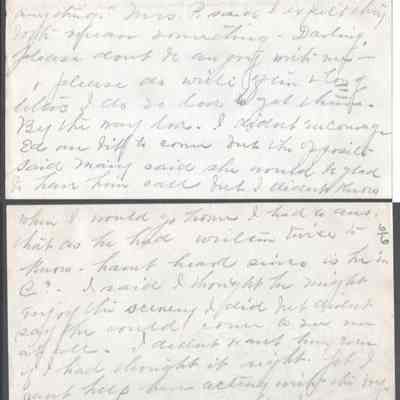 anything." Mrs. P. said I expect they
both mean something - Darling,
please don't be angry with me -
& please do write
letters I do so love to get them.
By the way love. I didn't encourage
Ed one bit to come but the opposite
said Mary said she would be glad
to have him call but I didn't know
when I would go home I had to ans.
that as he had written twice to
know - havn't heard since is he in
C? - I said I thought he might
enjoy the scenery I did but didn't
say he could come to see me
at all. I didn't want him even
if I had thought it right. Yet I
can't help him acting